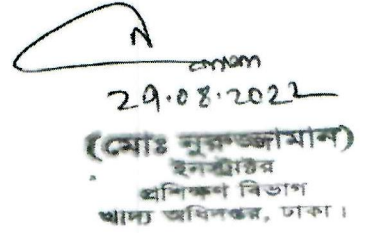 29.08.2022
(মোঃ নুরুজ্জামান)
ইনস্ট্রাক্টর
প্রশিক্ষণ বিভাগ
খাদ্য অধিদপ্তর, ঢাকা।